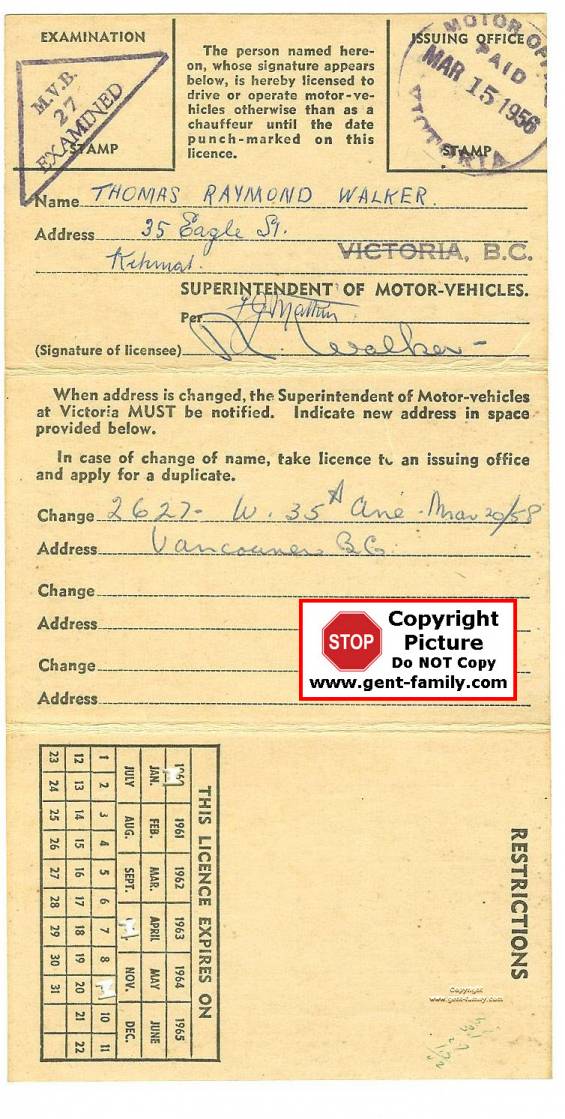 EXAMINATION
STAMP
M.V.B.
27
EXAMINED
The person named here-
on, whose signature appears
below, is hereby licensed to
drive or operate motor-ve-
hicles otherwise than as a
chauffeur until the date
punch-marked on this
licence.
ISSUING OFFICE
STAMP
MOTOR
PAID
MAR 15 1956
VICTORIA
Name THOMAS RAYMOND WALKER.
Address 35 Eagle St.
VICTORIA, B.C.
Kitimat.
SUPERINTENDENT OF MOTOR-VEHICLES.
Per
(Signature of licensee) Walker
When address is changed, the Superintendent of Motor-vehicles
at Victoria MUST be notified. Indicate new address in space
provided below.
In case of change of name, take licence to an issuing office
and apply for a duplicate.
Change 2627- W. 35 Ave. Mar 20/58
Address Vancouver B.C.
Change
Address
Change
Address
STOP
Copyright
Picture
Do NOT Copy
www.gent-family.com
THIS LICENCE EXPIRES ON
1961 1962 1963 1964 1965
JAN. FEB. MAR. APRIL MAY JUNE
JULY AUG. SEPT. NOV. DEC.
1 2 3 4 5 6 7 8 10 11
12 13 14 15 16 17 18 19 20 21 22
23 24 25 26 27 28 29 30 31
RESTRICTIONS
Copyright
www.gent-family.com